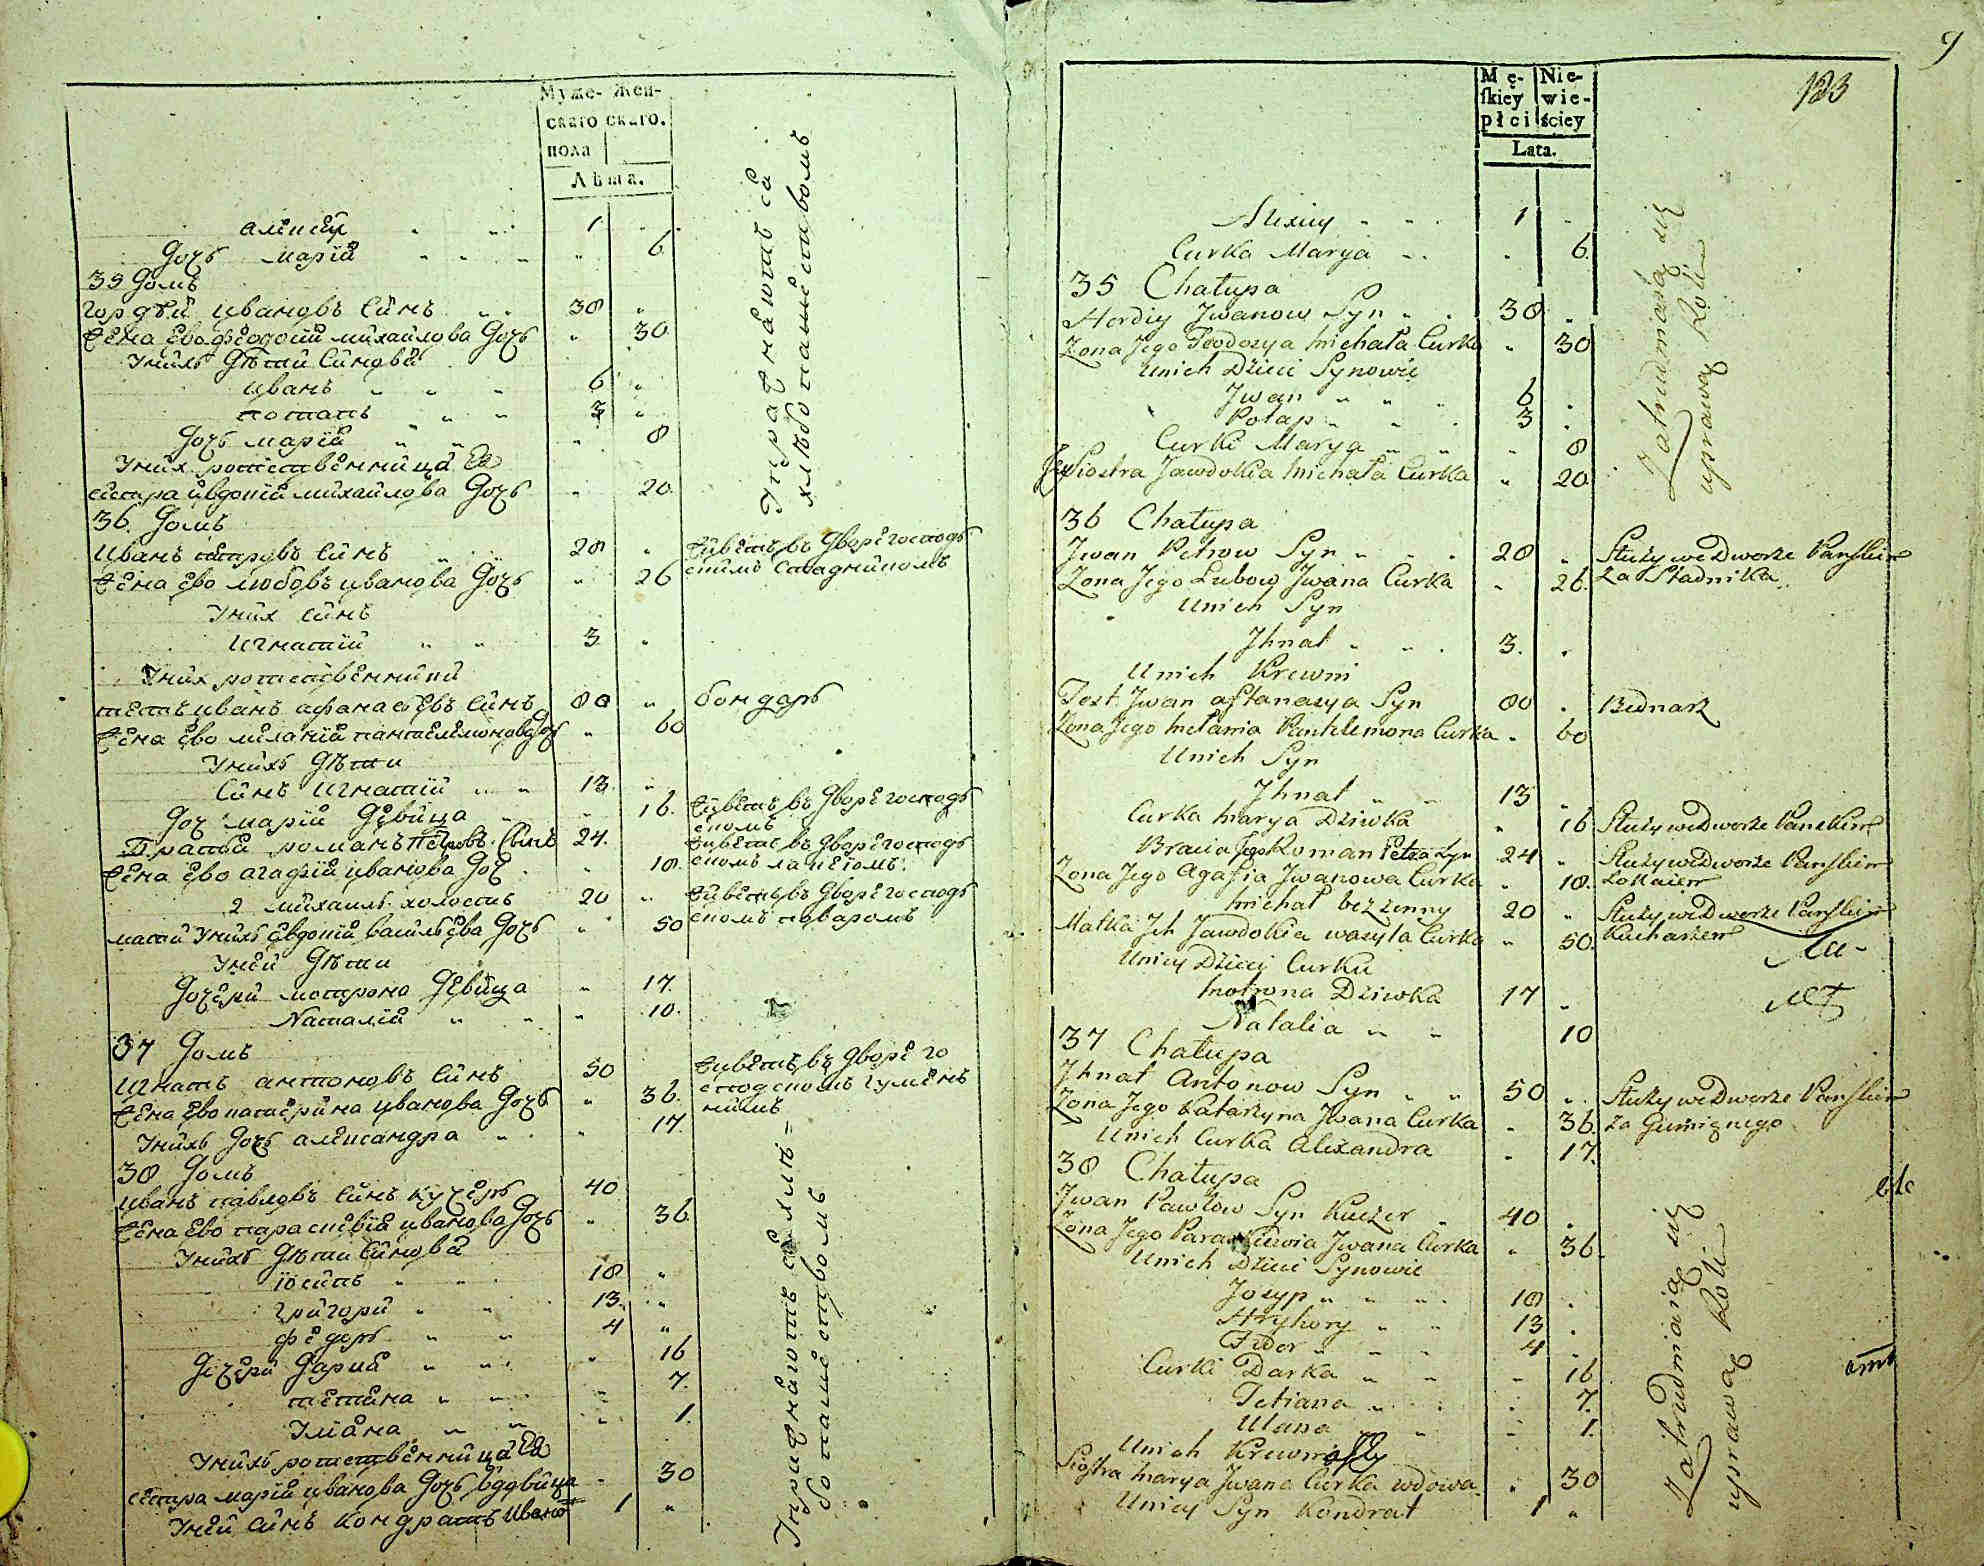 Муже- Жен-
скаго скаго.
пола
Лѣта.
алексей 1
Дочь мария 6
35 Домъ
Гордѣй Ивановъ Синъ 38
Жена ево феодосия михайлова Дочь 30
Унихъ Дѣти Синовя
Иванъ 6
потапъ 3
Дочь мария 8
Уних родственница Ея
сестра Явдокия михайлова Дочь 20
Упражняютъся
хлѣбопашествомъ
36 Домъ
Иванъ петровъ Синъ 28 Живетъ въ Дворе господ
Жена ево любовъ иванова Дочь 26 скимъ стадникомъ
Уних Синъ
Игнатий 3
Уних родственники
тесть иванъ афанасевъ Синъ 80 бондарь
Жена ево мелания пантелемонова Доч 60
Унихъ Дѣти
Синъ Игнатий 13
Доч мария Девица 16 Живетъ въ Дворе господ
скомъ
Братья романъ Петровъ Синъ 24 Живетъ въ Дворе господ
Жена ево агафия иванова Доч 18 скомъ лакеомъ
2 михаилъ холостъ 20 Живетъ въ Дворе господ
мати Унихъ Евдокия васильева Дочь 50 скомъ поваромъ
Уней Дѣти
Дочери мотрона Девица 17
Наталия 10
37 Домъ
Игнатъ антоновъ Синъ 50 Живетъ въ Дворе го
Жена ево катерина иванова Дочь 36 сподскомъ гумен
Унихъ Дочь александра 17 никомъ
38 Домъ
Иванъ павловъ Синъ кучеръ 40
Жена ево параскевия иванова Дочь 36
Унихъ Дѣти Синовя
Іосипъ 18
григори 13
федоръ 4
Дочери Дария 16
тетяна 7
Уляна 1
Унихъ родственница Ея
сестра мария иванова Дочь вдовица 30
Уней Синъ Кондратъ 1
Упражняютъся хлѣ=
бопашествомъ
9
123
Mę- Nie-
skiey wie-
płci ściey
Lata.
Alexiy 1
Curka Marya 6
35 Chałupa
Hordiy Jwanow Syn 38
Zona Jego Teodozya Michała Curka 30
Unich Dzieci Synowie
Jwan 6
Potap 3
Curki Marya 8
Siostra Jawdokia Michała Curka 20
Zatrudniaią się
uprawą Roli
36 Chałupa
Jwan Petrow Syn 28 Służy we Dworze Panskim
Zona Jego Lubow Jwana Curka 26 za Stadnika
Unich Syn
Jhnat 3
Unich Krewni
Test Jwan aftanazya Syn 80 Bednarz
Zona Jego Mełania Pantelemona Curka 60
Unich Syn
Jhnat 13
Curka Marya Dziwka 16 Służy we Dworze Panskim
Bracia Jego Roman Petra Syn 24 Służy we Dworze Panskim
Zona Jego Agafia Jwanowa Curka 18 Lokaiem
Michał bezżenny 20 Służy we Dworze Panskim
Matka Jch Jawdokia wasyla Curka 50 Kucharzem
Uniey Dzieci Curki
Motrona Dziwka 17
Natalia 10
37 Chałupa
Jhnat Antonow Syn 50 Służy we Dworze Panskim
Zona Jego Katarzyna Jwana Curka 36 za Gumiennego
Unich Curka Alexandra 17
38 Chałupa
Jwan Pawłow Syn Kuczer 40
Zona Jego Paraskiewia Jwana Curka 36
Unich Dzieci Synowie
Jozyp 18
Hryhory 13
Fedor 4
Curki Darka 16
Tetiana 7
Ulana 1
Unich Krewni
Siostra Marya Jwana Curka wdowa 30
Uniey Syn Kondrat 1
Zatrudniaią się
uprawą Roli